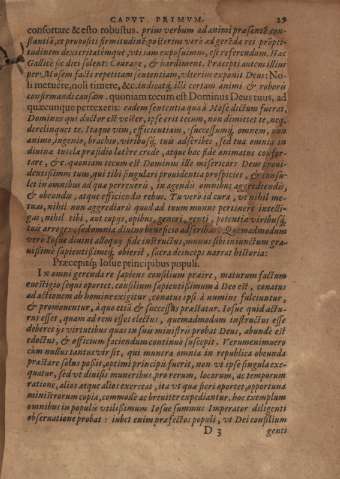 CAPVT PRIMVM. 29
confortare & esto robustus. prim verbum ad animi præsentē constantiā,
et propositi firmitudinē: posterius verò ad gerēda res promptitudinem
dexteritatēmque, vt suam exposuimus, esse referendum. Hac
Gallicè sic dici solent: Courage, & hardiment. Præcepti autem illius
per Mosem facti repetitam sententiam, vlterius exponit Deus: Noli
metuere, noli timere, &c. indicatq́, illi certam animi & roboris
confirmandi causam, quoniam tecum est Dominus Deus tuus, ad
quæcunque perrexeris: eadem sententia qua à Mose dictum fuerat,
Dominus qui ductor est vester, ipse erit tecum, non dimittet te, nec
derelinquet te. Itaque vim, efficientiam, successumq́; omnem, non
animo, ingenio, brachio, viribusq́; tuis adscribes, sed tua omnia in
diuina tutela præsidio latêre crede, atque hac fide animatus confortare,
&c. quoniam tecum est Dominus ille misericors Deus prouidentissimus
tuus, qui tibi singulari prouidentia prospiciet, & consulet
in omnibus ad quæ perrexeris, in agendis omnibus, aggrediendis,
& obeundis, atque efficiendis rebus. Tu verò id cura, vt nihil metuas,
nihil non aggrediaris quod ad tuum munus pertinere intelligas,
nihil tibi, aut copijs, opibus, generi, genti, potentiæ viribusq́;
tuis arroges, sed omnia diuino beneficio adscribas. Quemadmodum
vero Iosue diuini alloquij fide instructus, munus sibi iniunctum grauissimè
sapientissimeq́; obierit, sacra deinceps narrat historia:
Præcepitq́; Iosue principibus populi.
In omni gerenda re sapiens consilium præire, maturum factum
è vestigio sequi oportet. consilium sapientissimum à Deo est, conatus
ad actionem ab homine exigitur, conatus ipsi à numine fulciuntur,
& promouentur, à quo etiā & successus præstatur. Iosue quid acturus
esset, quam ad rem esset electus, quemadmodum instructus esse
deberet ijs virtutibus quas in suis ministris probat Deus, abunde est
edoctus, & officium faciendum continuò suscepit. Verumenimuero
cùm nullus tantus vir sit, qui munera omnia in republica obeunda
præstare solus possit, optimi principis fuerit, non vt ipse singula exequatur,
sed vt diuisis muneribus pro rerum, locorum, ac temporum
ratione, alios atque alios exerceat, ita vt quæ fieri oportet, opportuna
ministrorum copia, commodè ac breuiter expediantur. hoc exemplum
omnibus in populis vtilissimum Iosue summus Imperator diligenti
obseruatione probat: iubet enim præfectos populi, vt Dei consilium
D 3 genti